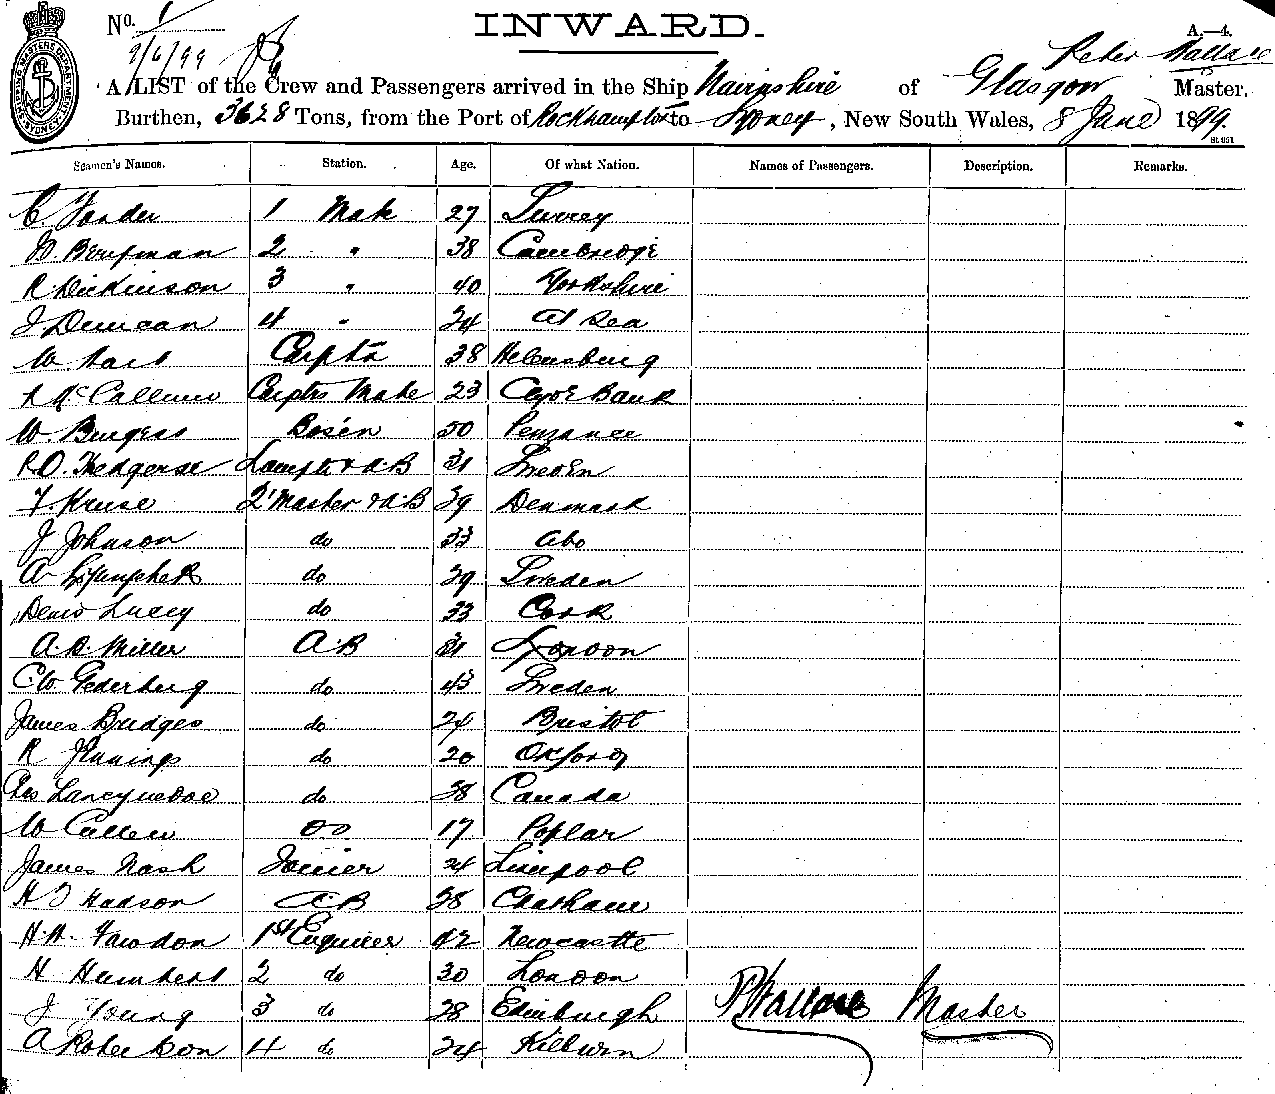 No. 1
INWARD.
A.—4.
9/6/99
Peter Wallace
A LIST of the Crew and Passengers arrived in the Ship Nairnshire of Glasgow Master,
Burthen, 3628 Tons, from the Port of Rockhampton to Sydney, New South Wales, 8 June 1899.
Seamen's Names. Station. Age. Of what Nation. Names of Passengers. Description. Remarks.
C. 1 Mate 27 Surrey
2 " 38 Cambridge
R Dickinson 3 " 40 Yorkshire
J Duncan 4 " 24 At Sea
W Hart Carptr 38 Helensburg
McCallum Carptrs Mate 23 Clyde Bank
W Burgess Bosén 50 Penzance
Lamptr & A.B 31 Sweden
F. Kruse 2r Master & A.B 39 Denmark
J Johnson do 33 Abo
A do 39 Sweden
Denis Lucey do 33 Cork
A. R. Miller A.B 31 London
C.W. Gederberg do 43 Sweden
James Bridges do 24 Bristol
R Jennings do 20 Oxford
do 38 Canada
W Cullen do 17 Poplar
James Nash Joiner 24 Liverpool
H J Hudson A.B 28 Chatham
H.H. Fawdon 1st Engineer 42 Newcastle
H Humbert 2 do 30 London
J Young 3 do 28 Edinburgh
P Wallace Master
A Robertson 4 do 24 Kilburn